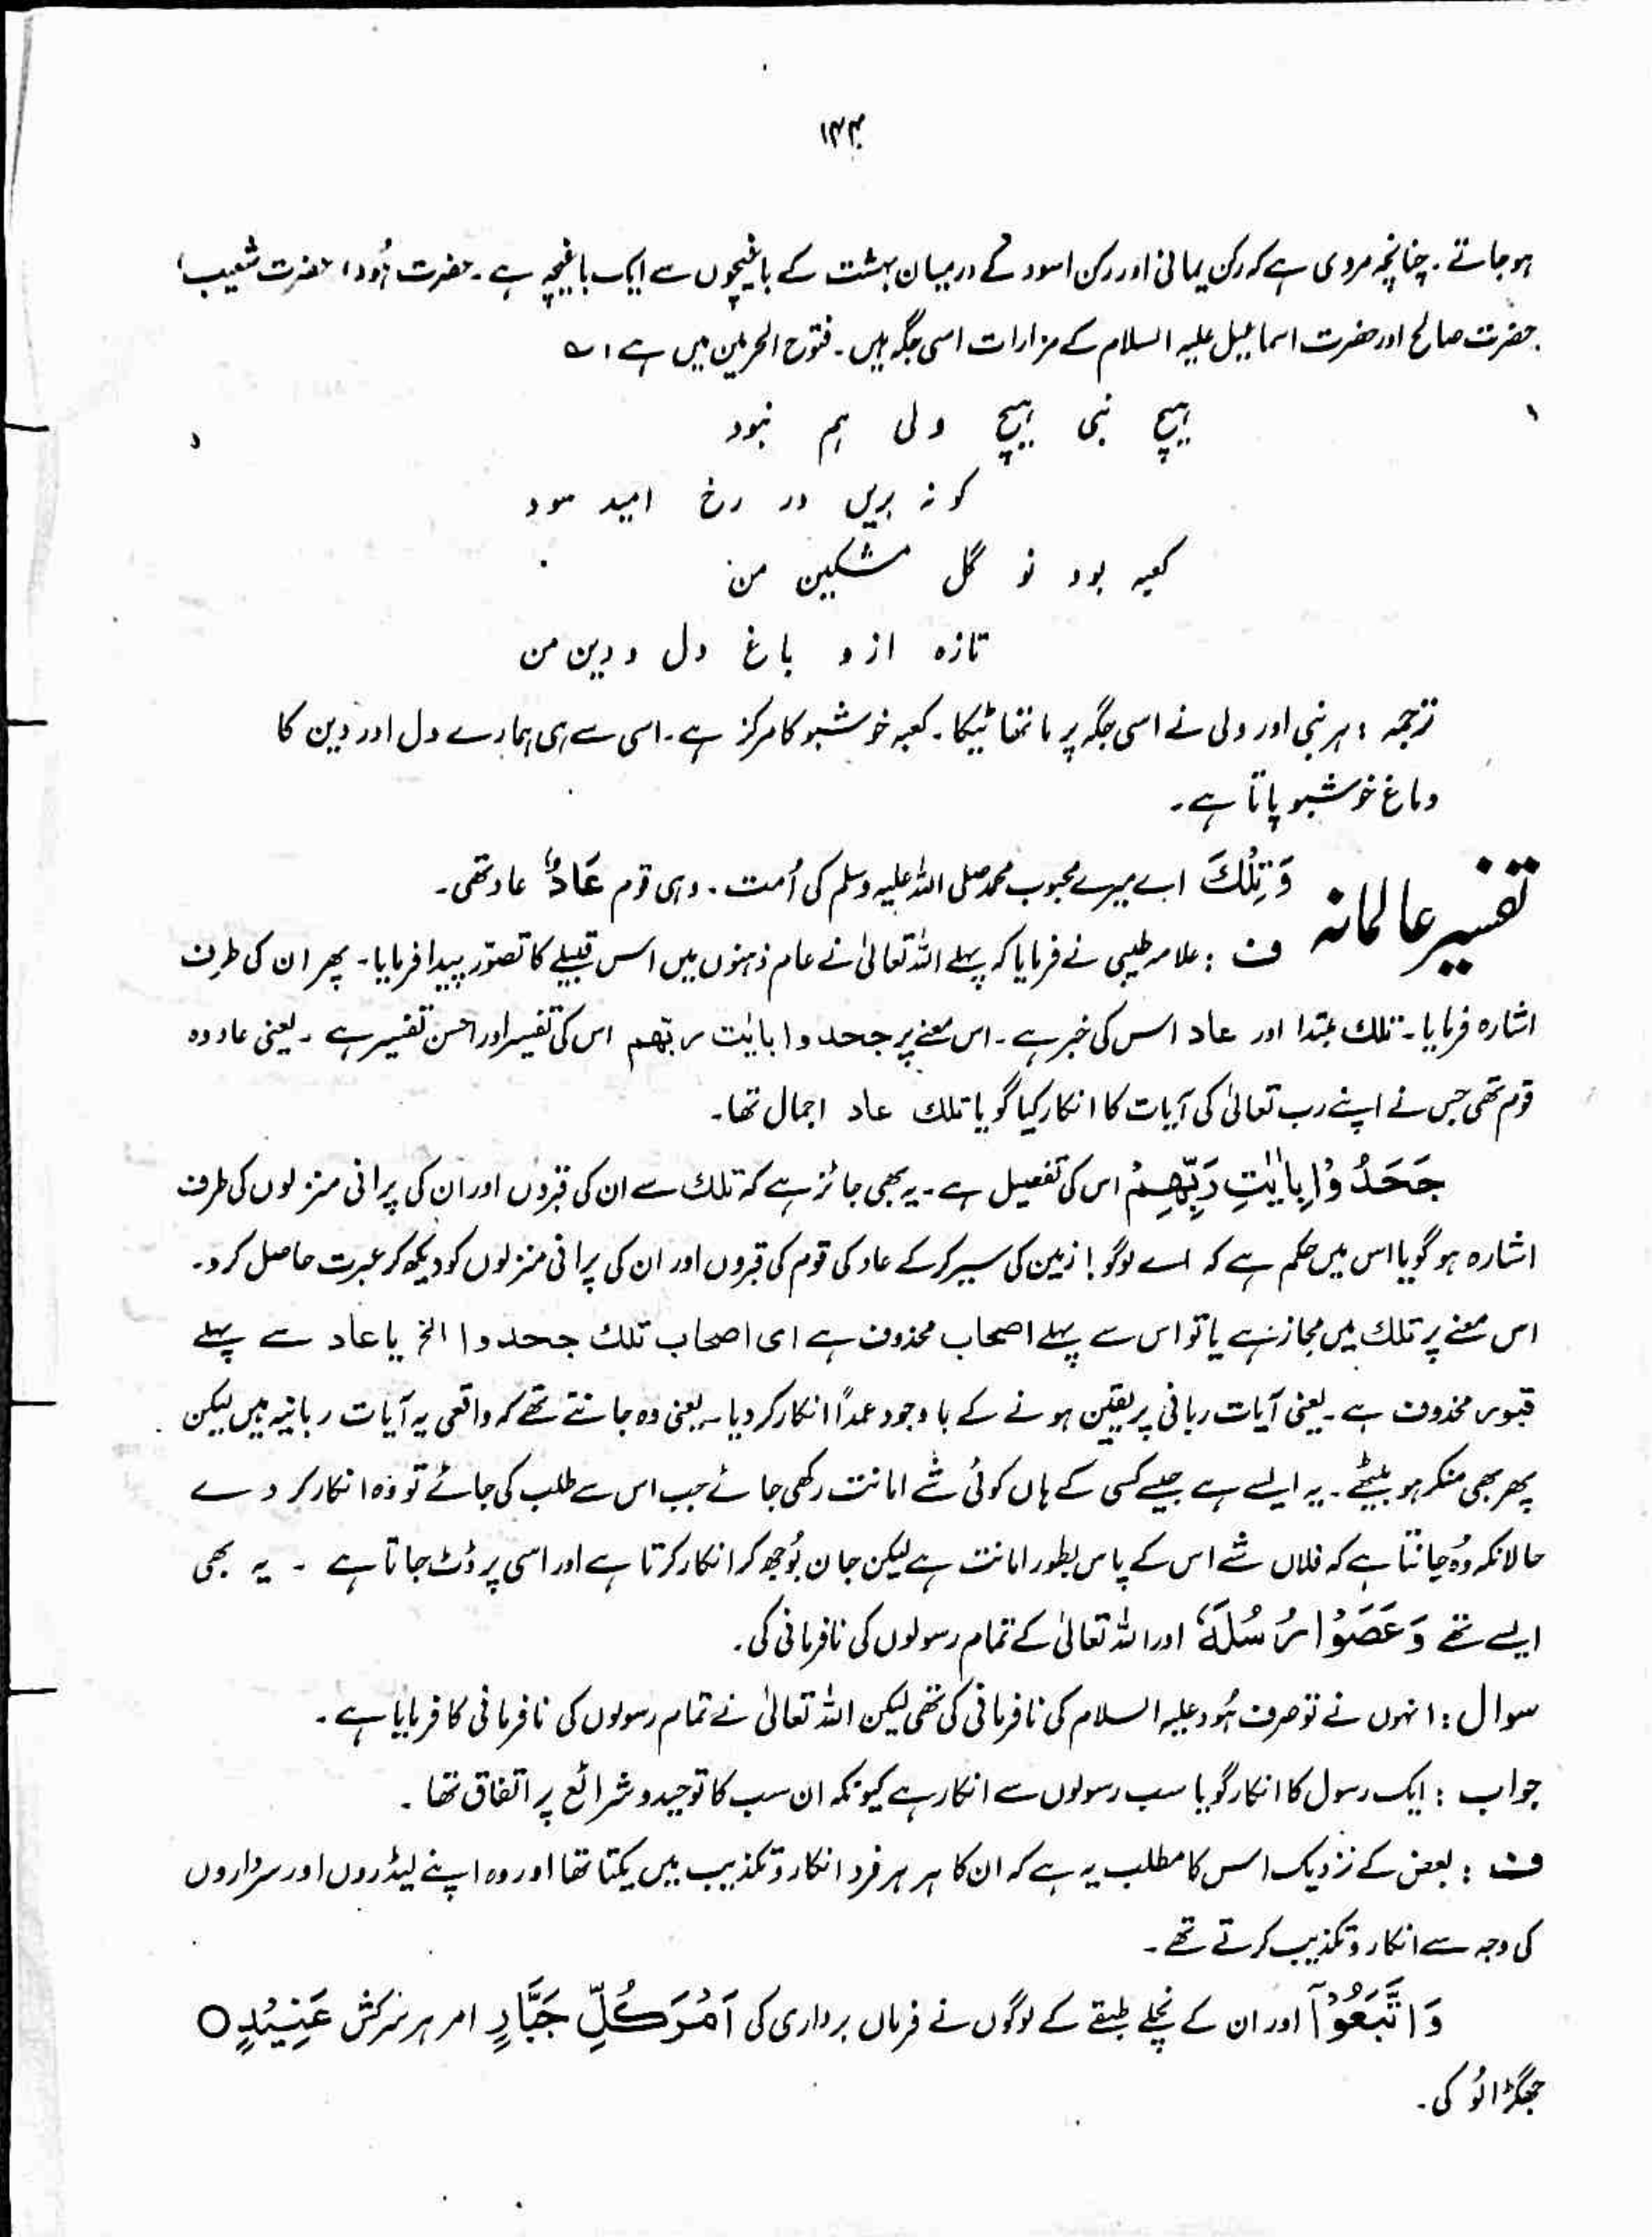 ۱۴۴
ہو جاتے۔ چنانچہ مروی ہے کہ رکن یمانی اور رکن اسود کے درمیان بہشت کے باغیچوں سے ایک باغیچہ ہے۔ حضرت ہُود، حضرت شعیب،
حضرت صالح اور حضرت اسماعیل علیہ السلام کے مزارات اسی جگہ ہیں۔ فتوح الحرمین میں ہے، ؎
ہیچ نبی ہیچ ولی ہم نبود
کو نہ بریں در رخ امید سود
کعبہ بود نو گل مشکین من
تازہ ازو باغ دل و دین من
ترجمہ: ہر نبی اور ولی نے اسی جگہ پر ماتھا ٹیکا۔ کعبہ خوشبو کا مرکز ہے۔ اسی سے ہی ہمارے دل اور دین کا
دماغ خوشبو پاتا ہے۔
تفسیر عالمانہ وَتِلْكَ اے میرے محبوب محمد صلی اللہ علیہ وسلم کی اُمت۔ وہی قوم عَادٌ عاد تھی۔
ف: علامہ طیبی نے فرمایا کہ پہلے اللہ تعالیٰ نے عام ذہنوں میں اس قبیلے کا تصوّر پیدا فرمایا۔ پھر ان کی طرف
اشارہ فرمایا۔ تلك مبتدا اور عاد اس کی خبر ہے۔ اس معنے پر جحدوا بایٰت ربهم اس کی تفسیر اور احسن تفسیر ہے۔ یعنی عاد وہ
قوم تھی جس نے اپنے رب تعالیٰ کی آیات کا انکار کیا گویا تلك عاد اجمال تھا۔
جَحَدُوْا بِاٰيٰتِ رَبِّهِمْ اس کی تفصیل ہے۔ یہ بھی جائز ہے کہ تلك سے ان کی قبروں اور ان کی پرانی منزلوں کی طرف
اشارہ ہو گویا اس میں حکم ہے کہ اے لوگو! زمین کی سیر کرکے عاد کی قوم کی قبروں اور ان کی پرانی منزلوں کو دیکھ کر عبرت حاصل کرو۔
اس معنے پر تلك میں مجاز ہے یا تو اس سے پہلے اصحاب محذوف ہے ای اصحاب تلك جحدوا الخ یا عاد سے پہلے
قبور محذوف ہے۔ یعنی آیات ربانی پر یقین ہونے کے باوجود عمداً انکار کر دیا۔ یعنی وہ جانتے تھے کہ واقعی یہ آیات ربانیہ ہیں لیکن
پھر بھی منکر ہو بیٹھے۔ یہ ایسے ہے جیسے کسی کے ہاں کوئی شے امانت رکھی جائے جب اس سے طلب کی جائے تو وہ انکار کر دے
حالانکہ وہ جانتا ہے کہ فلاں شے اس کے پاس بطور امانت ہے لیکن جان بُوجھ کر انکار کرتا ہے اور اسی پر ڈٹ جاتا ہے۔ یہ بھی
ایسے تھے وَعَصَوْا رُسُلَهٗ اور اللہ تعالیٰ کے تمام رسولوں کی نافرمانی کی۔
سوال: انہوں نے تو صرف ہُود علیہ السلام کی نافرمانی کی تھی لیکن اللہ تعالیٰ نے تمام رسولوں کی نافرمانی کا فرمایا ہے۔
جواب: ایک رسول کا انکار گویا سب رسولوں سے انکار ہے کیونکہ ان سب کا توحید و شرائع پر اتفاق تھا۔
ف: بعض کے نزدیک اس کا مطلب یہ ہے کہ ان کا ہر ہر فرد انکار و تکذیب میں یکتا تھا اور وہ اپنے لیڈروں اور سرداروں
کی وجہ سے انکار و تکذیب کرتے تھے۔
وَاتَّبَعُوْٓا اور ان کے نچلے طبقے کے لوگوں نے فرماں برداری کی اَمْرَ كُلِّ جَبَّارٍ امر ہر سرکش عَنِيْدٍ ○
جھگڑالُو کی۔